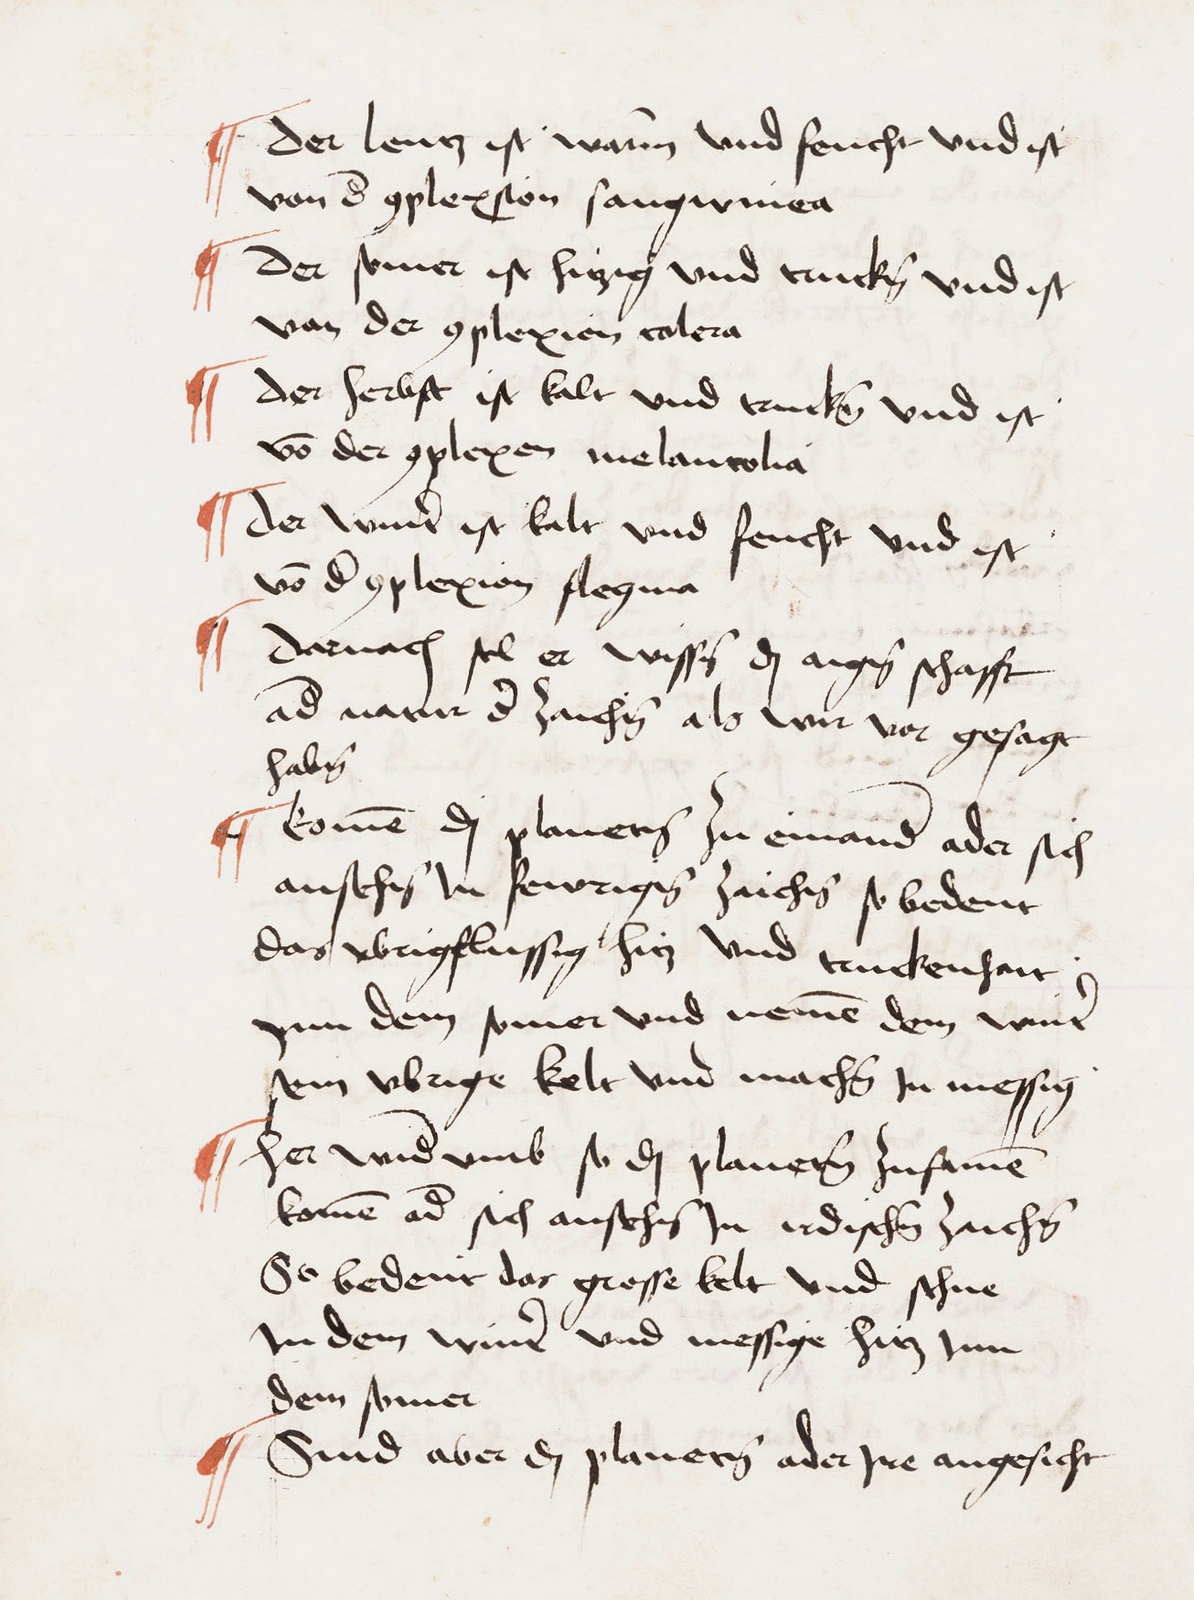 ¶ Der lentz ist warm̄ vnd feucht vnd ist
von d̄ ꝯplexsion sangwinea
¶ Der somer ist hitzig vnd truckn̄ vnd ist
von der ꝯplexion colera
¶ Der herbst ist kalt vnd truckn̄ vnd ist
vō der ꝯplexen melancolia
¶ der wint̄ ist kalt vnd feucht vnd ist
vō d̄ ꝯplexion flegma
¶ Darnach sol er wissn̄ dy aign̄ schafft
ad̄ natur d̄ zaichn̄ als wir vor gesagt
habn̄
¶ komē dy planetn̄ zu einand̄ ader sich
ansehn̄ In fewrign̄ zaichn̄ so bedeut
das vbrigflussig hitz vnd truckenhait
ynn dem somer vnd nemē dem wint̄
sein vbrige kelt vnd machn̄ In messig
¶ her wid̄ vmb so dy planetn̄ zusamē
komē ad̄ sich ansehn̄ In irdischn̄ zaichn̄
So bedeut das grosse kelt vnd schne
In dem wint̄ vnd messige hitz Inn
dem somer
¶ Sind aber dy planetn̄ ader Ire angesicht